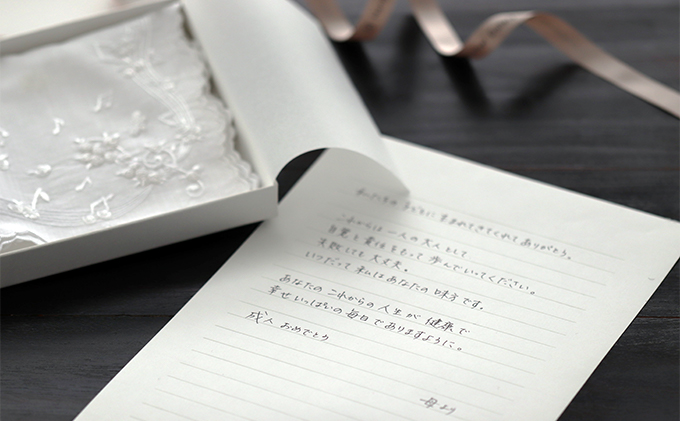 私たちの子どもに生まれてきてくれてありがとう。
これからは一人の大人として
自覚と責任をもって歩んでいってください。
失敗しても大丈夫。
いつだって私はあなたの味方です。
あなたのこれからの人生が健康で
幸せいっぱいの毎日でありますように。
成人おめでとう
母より